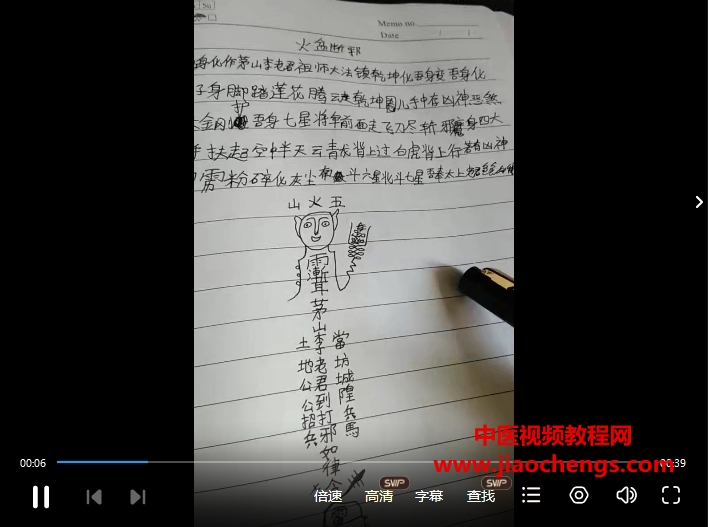 Memo no.
Date / /
火盆断邪
身化作茅山李老君祖师大法镇乾坤化吾身变吾身化
子身脚踏莲花腾云走乾坤圈儿手中存凶神恶煞
护
金刚 吾身七星将军前面走飞刀尽斩邪魔身四大
扶起空中半天云青龙背上过白虎背上行若有凶神
雷粉碎化灰尘 斗六星北斗七星吾奉太上老君
山火五
雨
漸
耳
茅山李老君到打邪如律令
土地公公招兵
當坊城隍兵馬
中医视频教程网
www.jiaochengs.com
00:06
:39
倍速
SWIP
高清
字幕
SWIP
查找